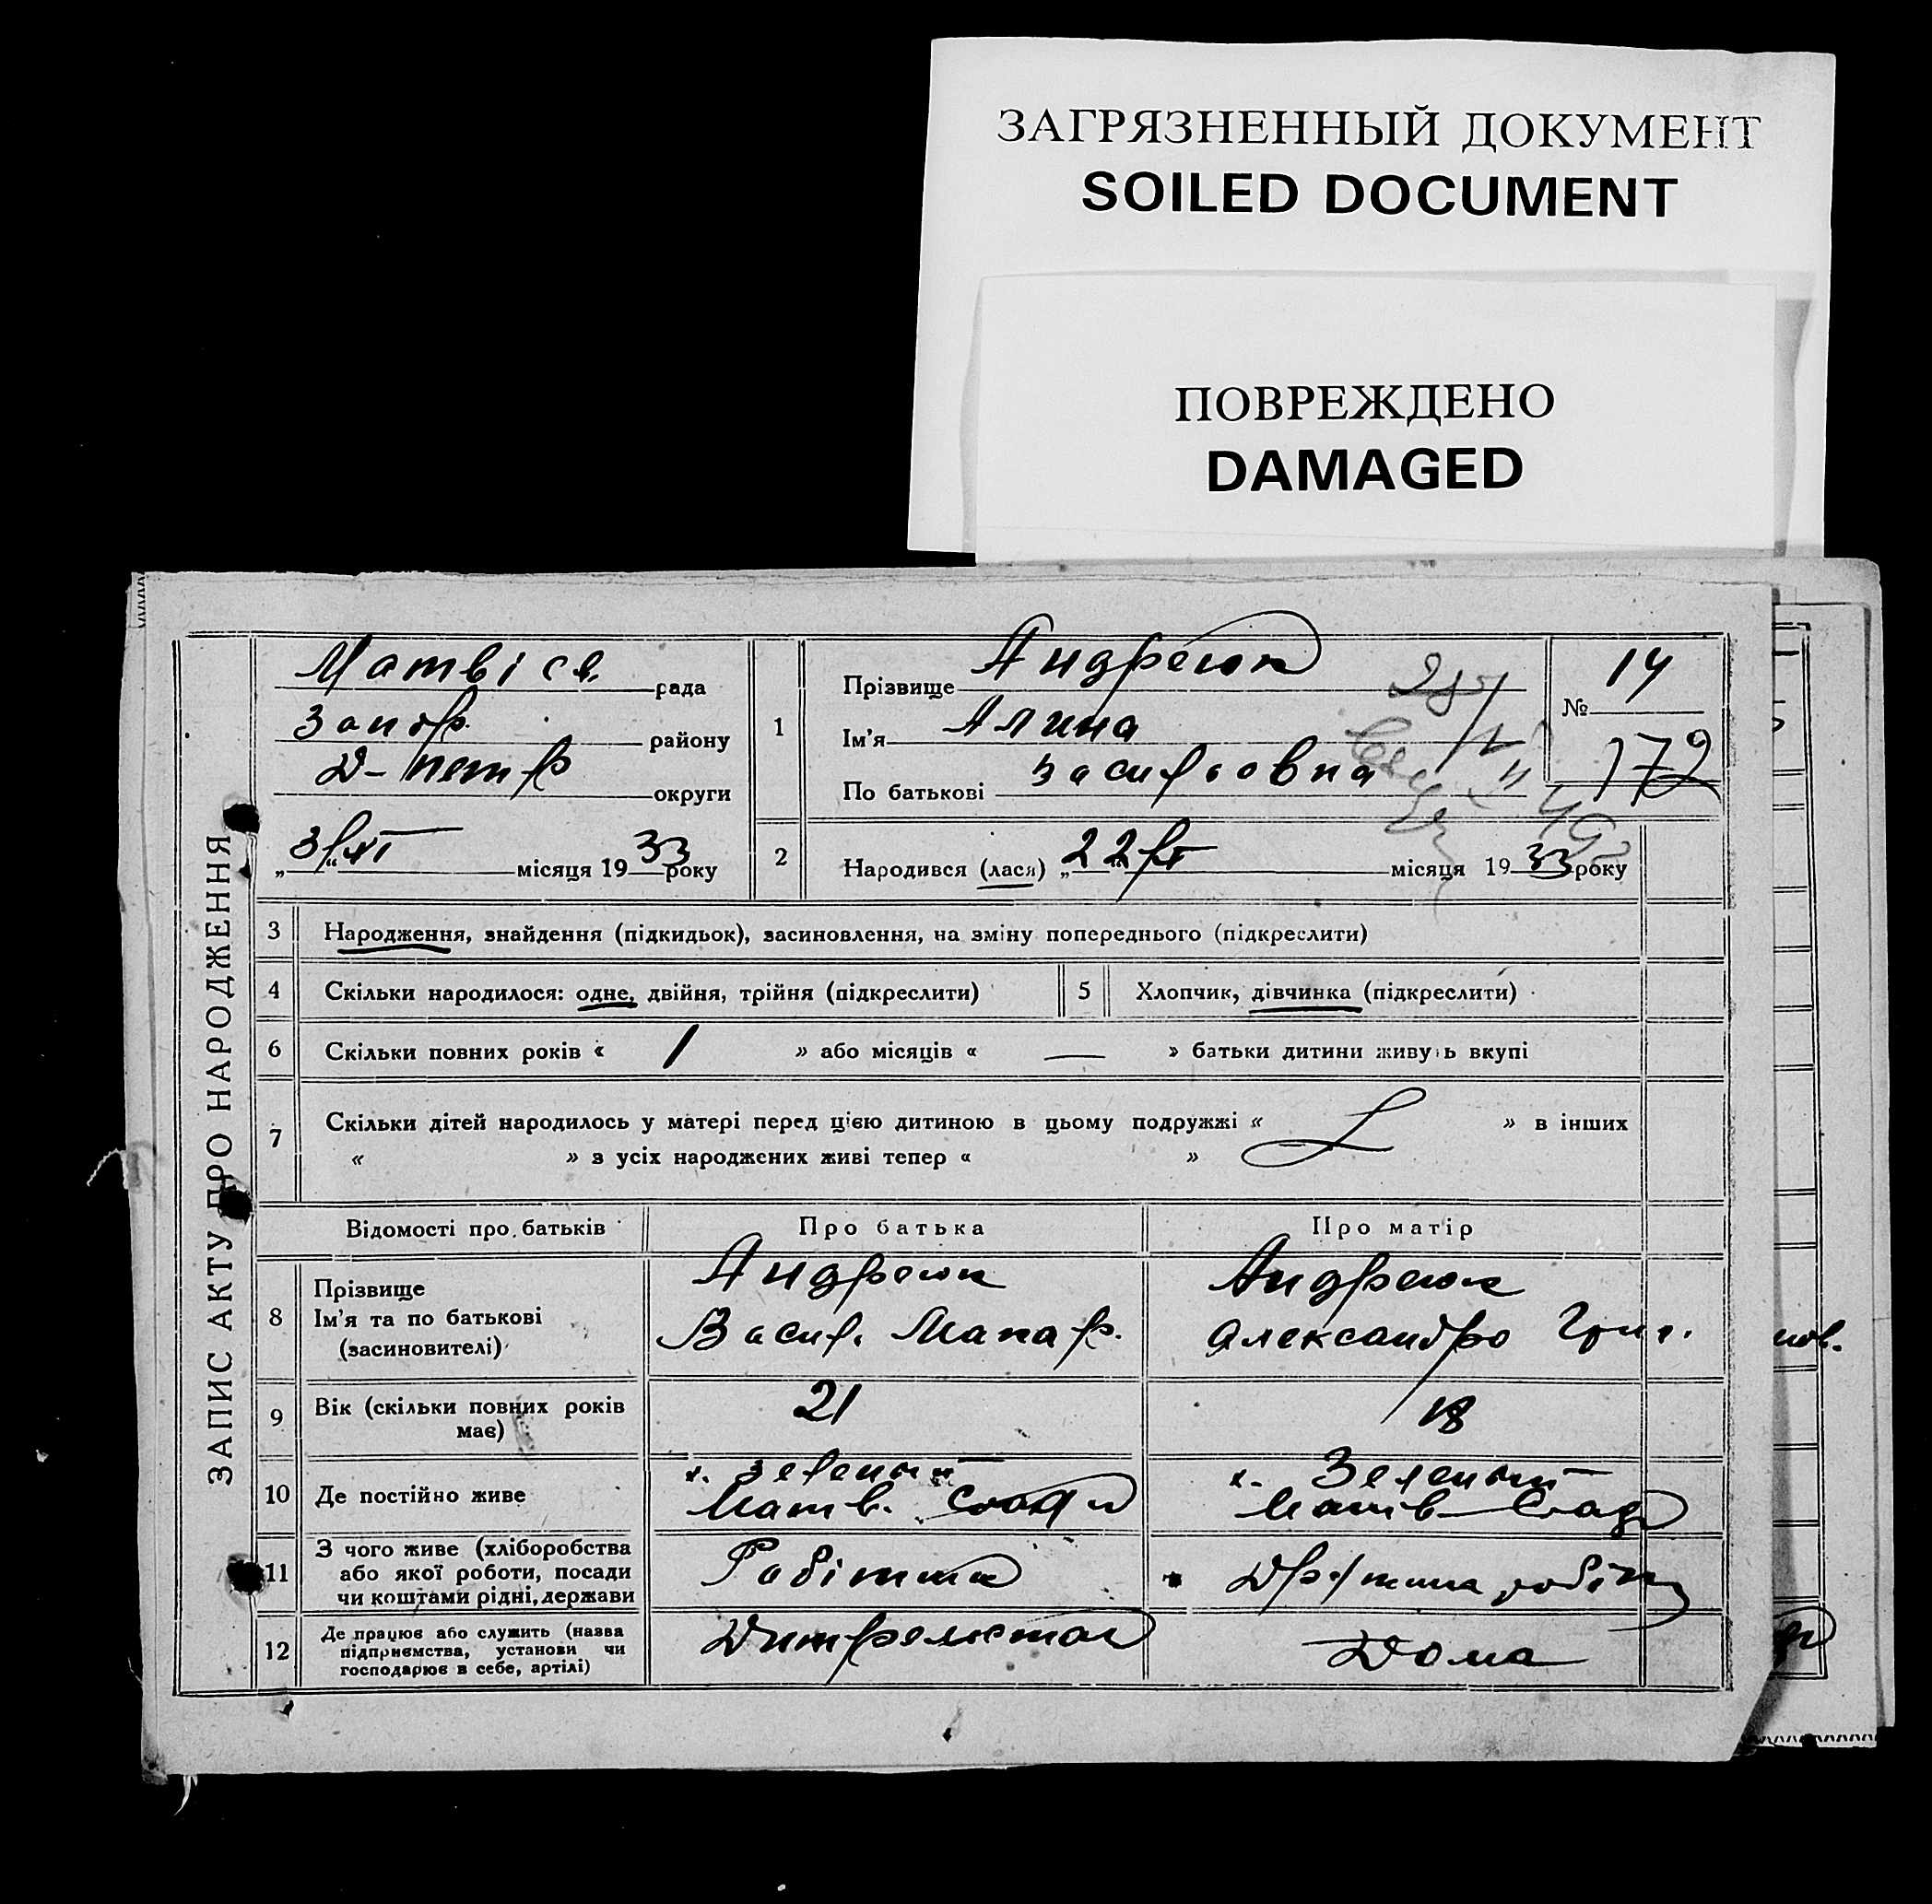 ЗАГРЯЗНЕННЫЙ ДОКУМЕНТ
SOILED DOCUMENT
ПОВРЕЖДЕНО
DAMAGED
ЗАПИС АКТУ ПРО НАРОДЖЕННЯ
Матвіев. рада
Запор. району
Д-петр округи
„3/XI“ місяця 1933 року
1
Прізвище Андреюк
Ім'я Алина
По батькові Васильовна
№ 14
172
2
Народився (лася) „22/X“ місяця 1933 року
3 Народження, знайдення (підкидьок), засиновлення, на зміну попереднього (підкреслити)
4 Скільки народилося: одне, двійня, трійня (підкреслити) 5 Хлопчик, дівчинка (підкреслити)
6 Скільки повних років « 1 » або місяців « — » батьки дитини живуть вкупі
7 Скільки дітей народилось у матері перед цією дитиною в цьому подружжі « » в інших
« » з усіх народжених живі тепер « »
Відомості про батьків Про батька Про матір
8 Прізвище
Ім'я та по батькові
(засиновителі)
Андреюк
Васил. Макар.
Андреюк
Александра Григ.
9 Вік (скільки повних років має) 21 18
10 Де постійно живе
х. Зелений
Матв.
х. Зелений
Матв
11 З чого живе (хліборобства
або якої роботи, посади
чи коштами рідні, держави
Робітник
Др/жина робітн
12 Де працює або служить (назва
підприємства, установи чи
господарює в себе, артілі)
Дома